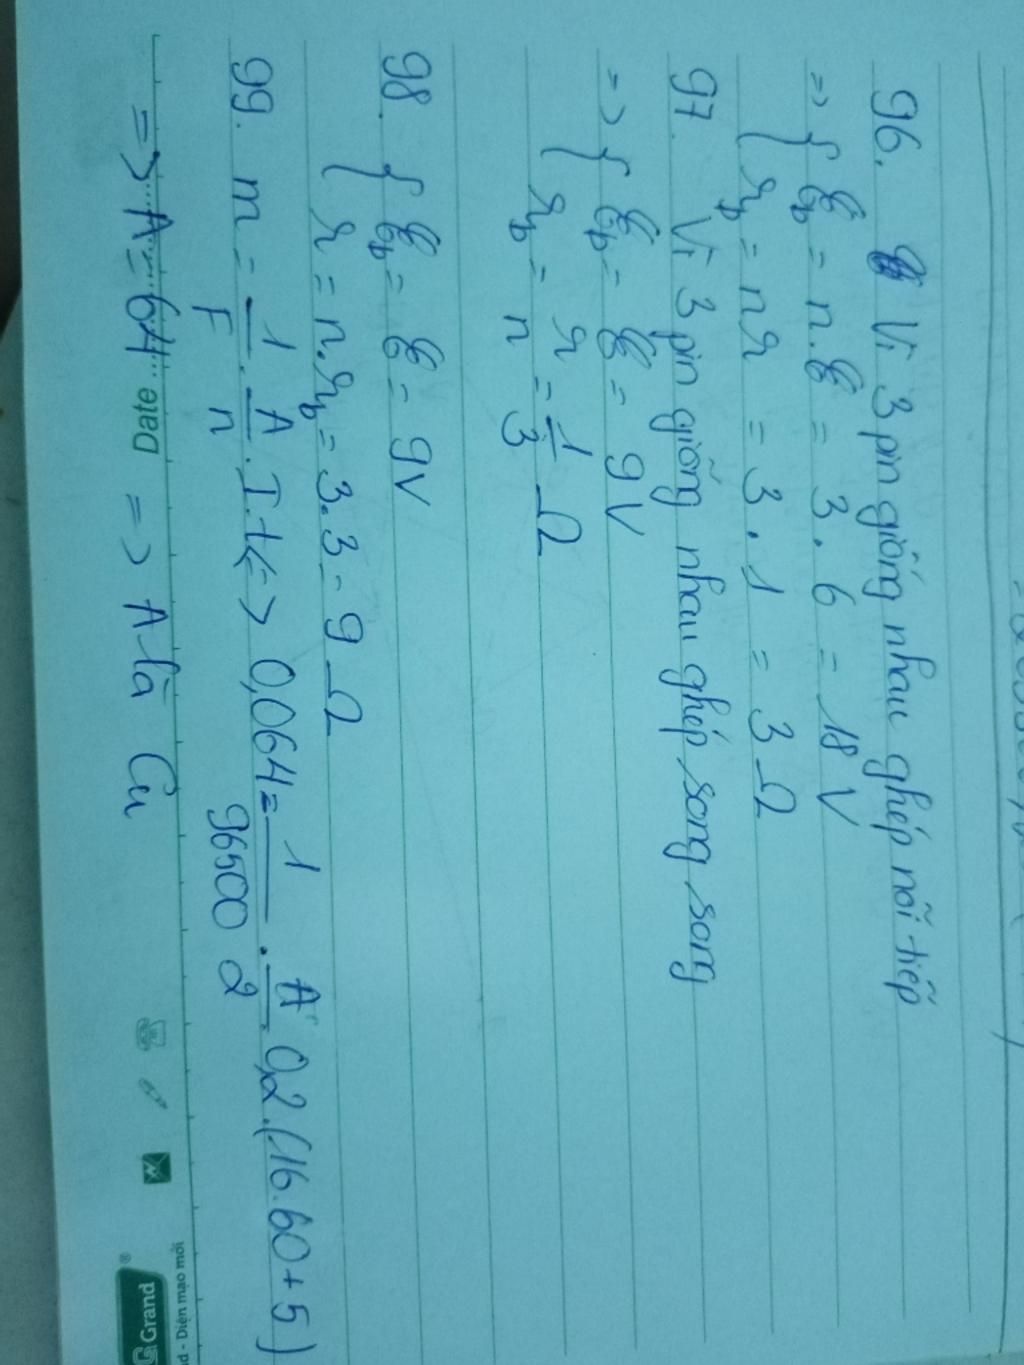 96. Vì 3 pin giống nhau ghép nối tiếp
=> { ℰb = n.ℰ = 3.6 = 18 V
{ rb = nr = 3.1 = 3 Ω
97. Vì 3 pin giống nhau ghép song song
=> { ℰb = ℰ = 9V
{ rb = r/n = 1/3 Ω
98. { ℰb = ℰ = 9V
{ r = n.rb = 3.3 = 9 Ω
99. m = 1/F . A/n . I.t <=> 0,064 = 1/96500 . A/2 . 0,2.(16.60+5)
=> A = 64 => A là Cu
Date
Grand ®
- Diện mạo mới